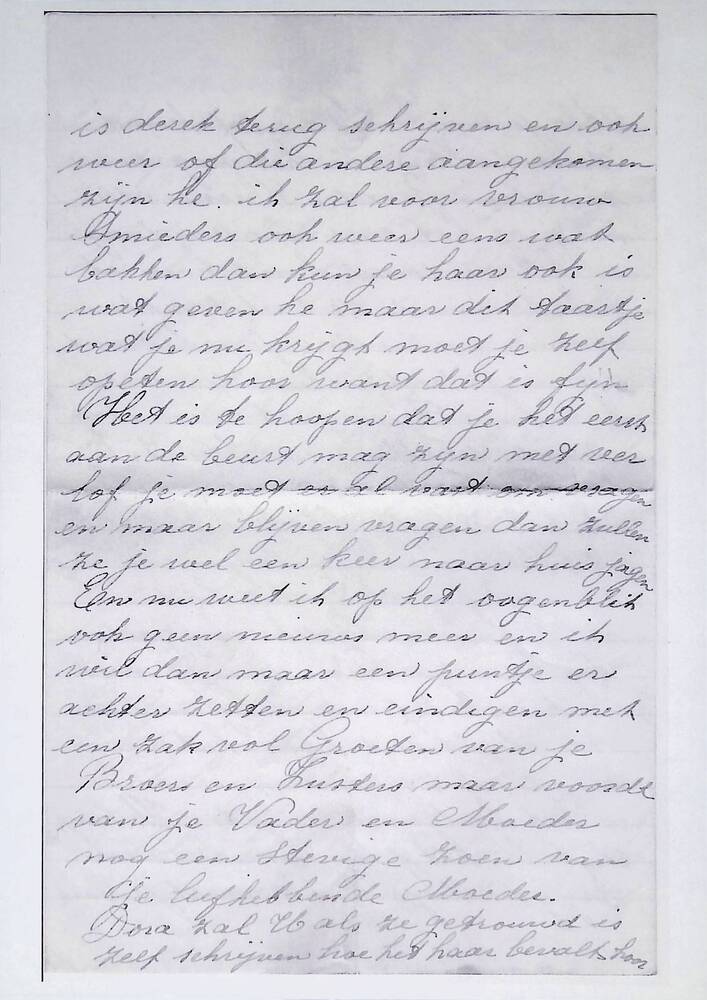 is derek terug schrijven en ook
weer of die andere aangekomen
zijn he. ik zal voor vrouw
Smieders ook weer eens wat
bakken dan kun je haar ook is
wat geven he maar dit taartje
wat je nu krijgt moet je zelf
opeten hoor want dat is fijn
Het is te hoopen dat je het eerst
aan de beurt mag zijn met ver
lof je moet er al vast om vragen
en maar blijven vragen dan zullen
ze je wel een keer naar huis jagen
En nu weet ik op het oogenblik
ook geen nieuws meer en ik
wil dan maar een puntje er
achter zetten en eindigen met
een zak vol Groeten van je
Broers en Zusters maar voorde
van je Vader en Moeder
nog een stevige zoen van
je liefhebbende Moeder.
Dora zal U als ze getrouwd is
zelf schrijven hoe het haar bevalt hoor